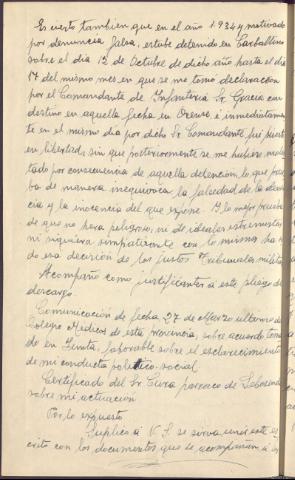 Es cierto tambien que en el año 1934 y motivado
por denuncia falsa, estube detenido en Carballino
sobre el dia 12 de Octubre de dicho año hasta el dia
17 del mismo mes en que se me tomo declaración
por el Comandante de Infanteria Sr. Gracia con
destino en aquella fecha en Orense, é inmediatamen
te en el mismo dia por dicho Sr. Comandante fui puesto
en libertad, sin que posteriormente se me hubiere moles
tado por consecuencia de aquella detención, lo que prue
ba de manera inequivoca la falsedad de la denun
cia y la inocencia del que expone. Y la mejor prueba
de que no era peligroso, ni de ideales extremistas
ni siquiera simpatizante con lo mismo ha si
do esa decisión de los justos Tribunales militares
Acompaño como justificantes a este pliego de
descargo.
Comunicación de fecha 27 de Marzo ultimo del
Colegio Medicos de esta provincia, sobre acuerdo toma
do en Junta, favorable sobre el esclarecimiento
de mi conducta politico-social
Certificado del Sr. Cura parroco de
sobre mi actuación
Por lo expuesto
Suplico a V. S. se sirva unir este es
crito con los documentos que se acompañan a su